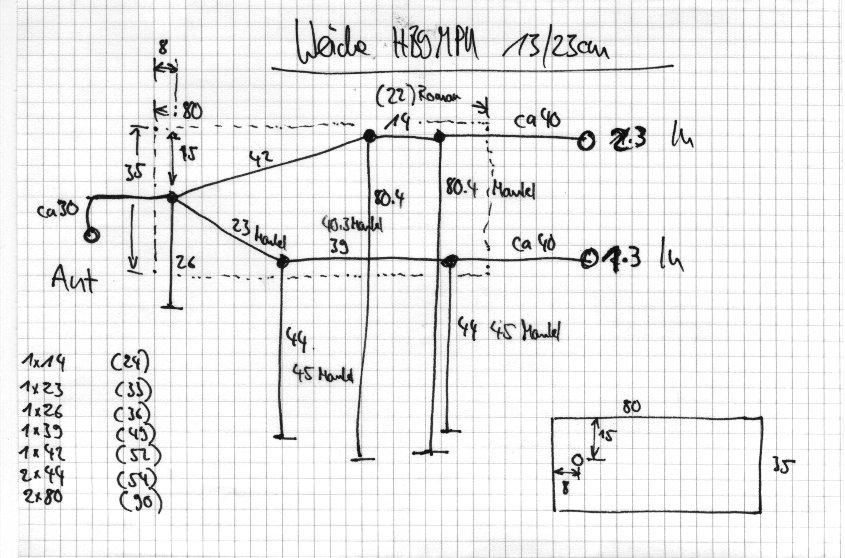 Weiche HB9MPU 13/23cm
8
(22) Roman
80
14
ca 40
2.3 In
35
15
42
80.4
80.4 Mantel
ca 30
23 Mantel
40.3 Mantel
39
ca 40
1.3 In
26
Ant
44
44 45 Mantel
45 Mantel
1x14 (24)
1x23 (33)
1x26 (36)
1x39 (49)
1x42 (52)
2x44 (54)
2x80 (90)
80
15
35
8